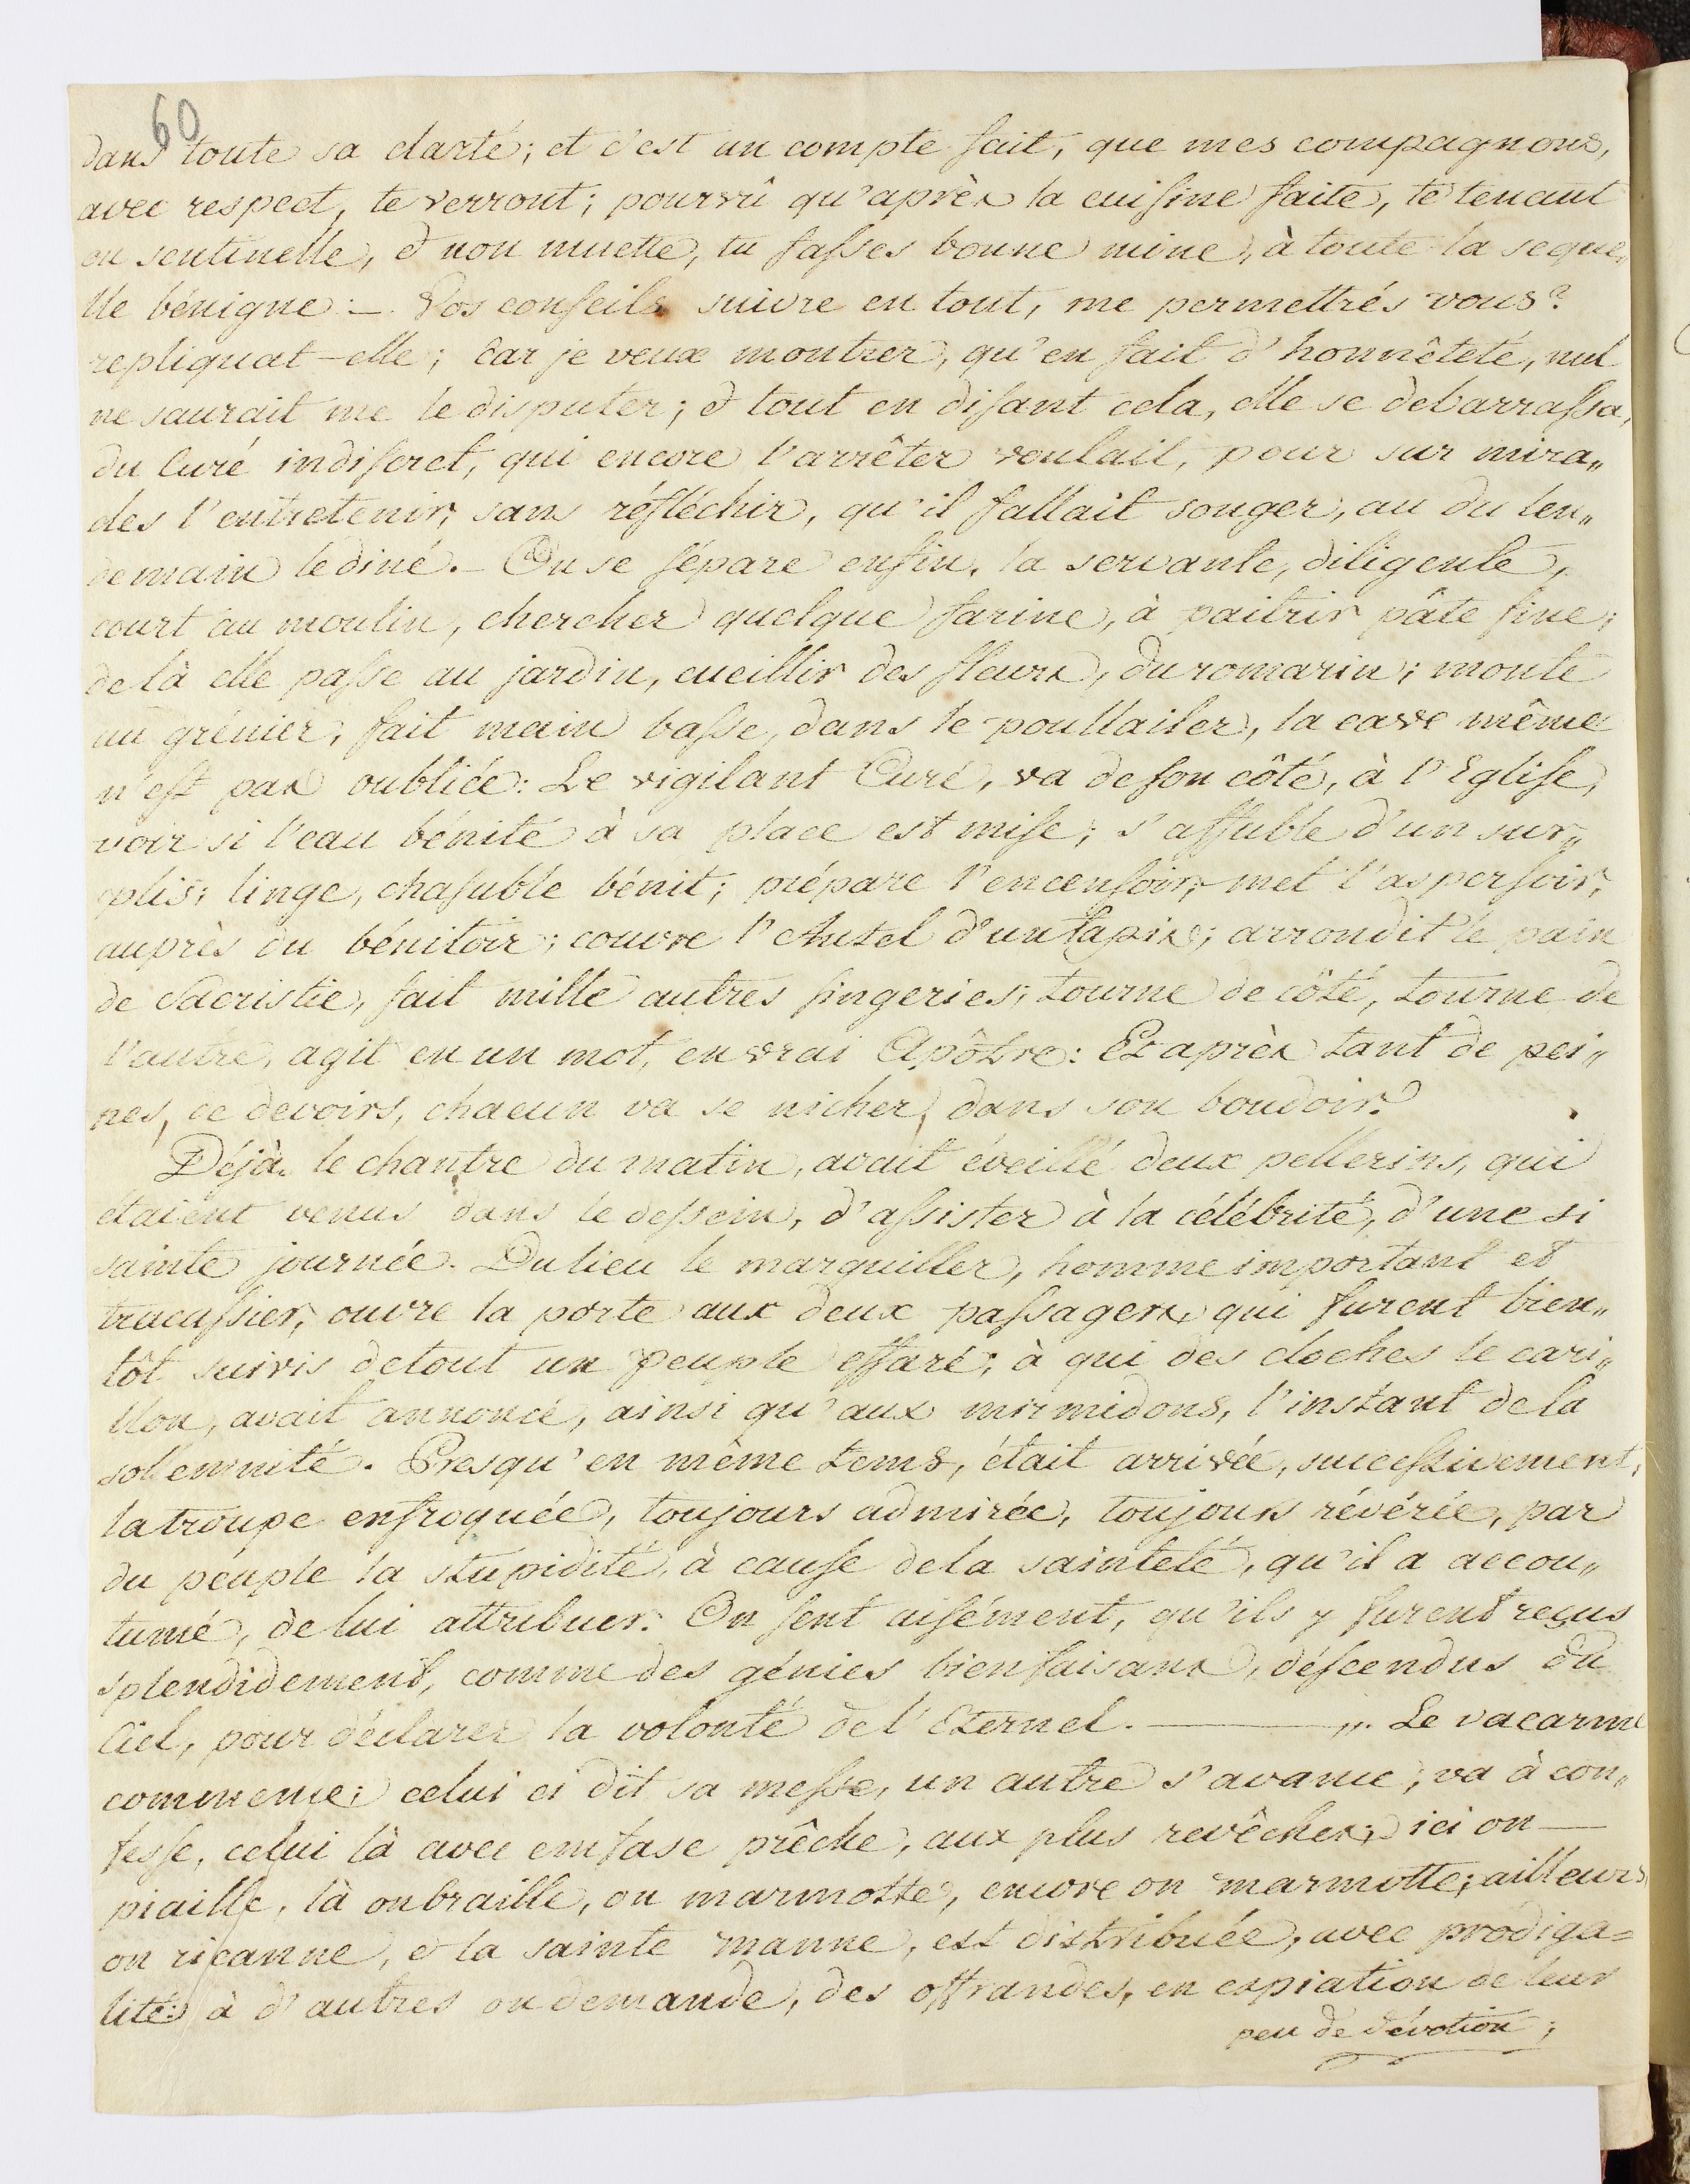 60
dans toute sa clarté; et c'est un compte fait, que mes compagnons,
avec respect, te verront; pourvû qu'après la cuisine faite, te tenant
en sentinelle, & non muette, tu fasses bonne mine, à toute la seque„
lle bénigne: _ Vos conseils suivre en tout, me permettrés vous?
repliquat-elle; car je veux montrer, qu'en fait d'honnêteté, nul
ne saurait me le disputer; & tout en disant cela, elle se debarrassa,
du Curé indiscret, qui encore l'arrêter voulait, pour sur mira„
cles l'entretenir, sans réfléchir, qu'il fallait songer, au du len„
demain le diné. _ On se sépare enfin, la servante, diligente,
court au moulin, chercher quelque farine, à paitrir pâte fine;
de là elle passe au jardin, cueillir des fleurs, du romarin; monte
au grénier, fait main basse, dans le poullailer, la cave même
n'est pas oubliée: Le vigilant Curé, va de son côté, à l'Eglise,
voir si l'eau bénite à sa place est mise; s'affuble d'un sur„
plis; linge, chasuble bénit; prépare l'encensoir, met l'aspersoir,
auprès du bénitoir; couvre l'Autel d'un tapis; arrondit le pain
de Sacristie, fait mille autres singeries; tourne de côté, tourne de
l'autre, agit en un mot, en vrai Apôtre: Et après tant de pei„
nes, de devoirs, chacun va se nicher, dans son boudoir.
Déjà le chantre du matin, avait éveillé deux pellerins, qui
étaient venus dans le dessein, d'assister à la célébrité, d'une si
sainte journée. Du lieu le marguiller, homme important et
tracassier, ouvre la porte aux deux passagers, qui furent bien„
tôt suivis de tout un peuple effaré; à qui des cloches le cari„
llon, avait annoncé, ainsi qu'aux mirmidons, l'instant de la
solemnité. Presqu'en même tems, était arrivée, successivement,
la troupe enfroquée, toujours admirée, toujours révérée, par
du peuple la stupidité, à cause de la sainteté, qu'il a accou„
tumé, de lui attribuer. On sent aisément, qu'ils y furent reçus
splendidement, comme des génies bienfaisans, déscendus du
Ciel, pour déclarer la volonté de l'Eternel. ——— „. Le vacarme
commence; celui ci dit sa messe, un autre s'avance; va à con„
fesse, celui là avec emfase prêche, aux plus revêches; ici on —
piaille, là on braille, on marmotte, encore on marmotte; ailleurs
on ricanne, & la sainte manne, est distribuée, avec prodiga=
lité: à d'autres on demande, des offrandes, en expiation de leur
peu de dévotion;